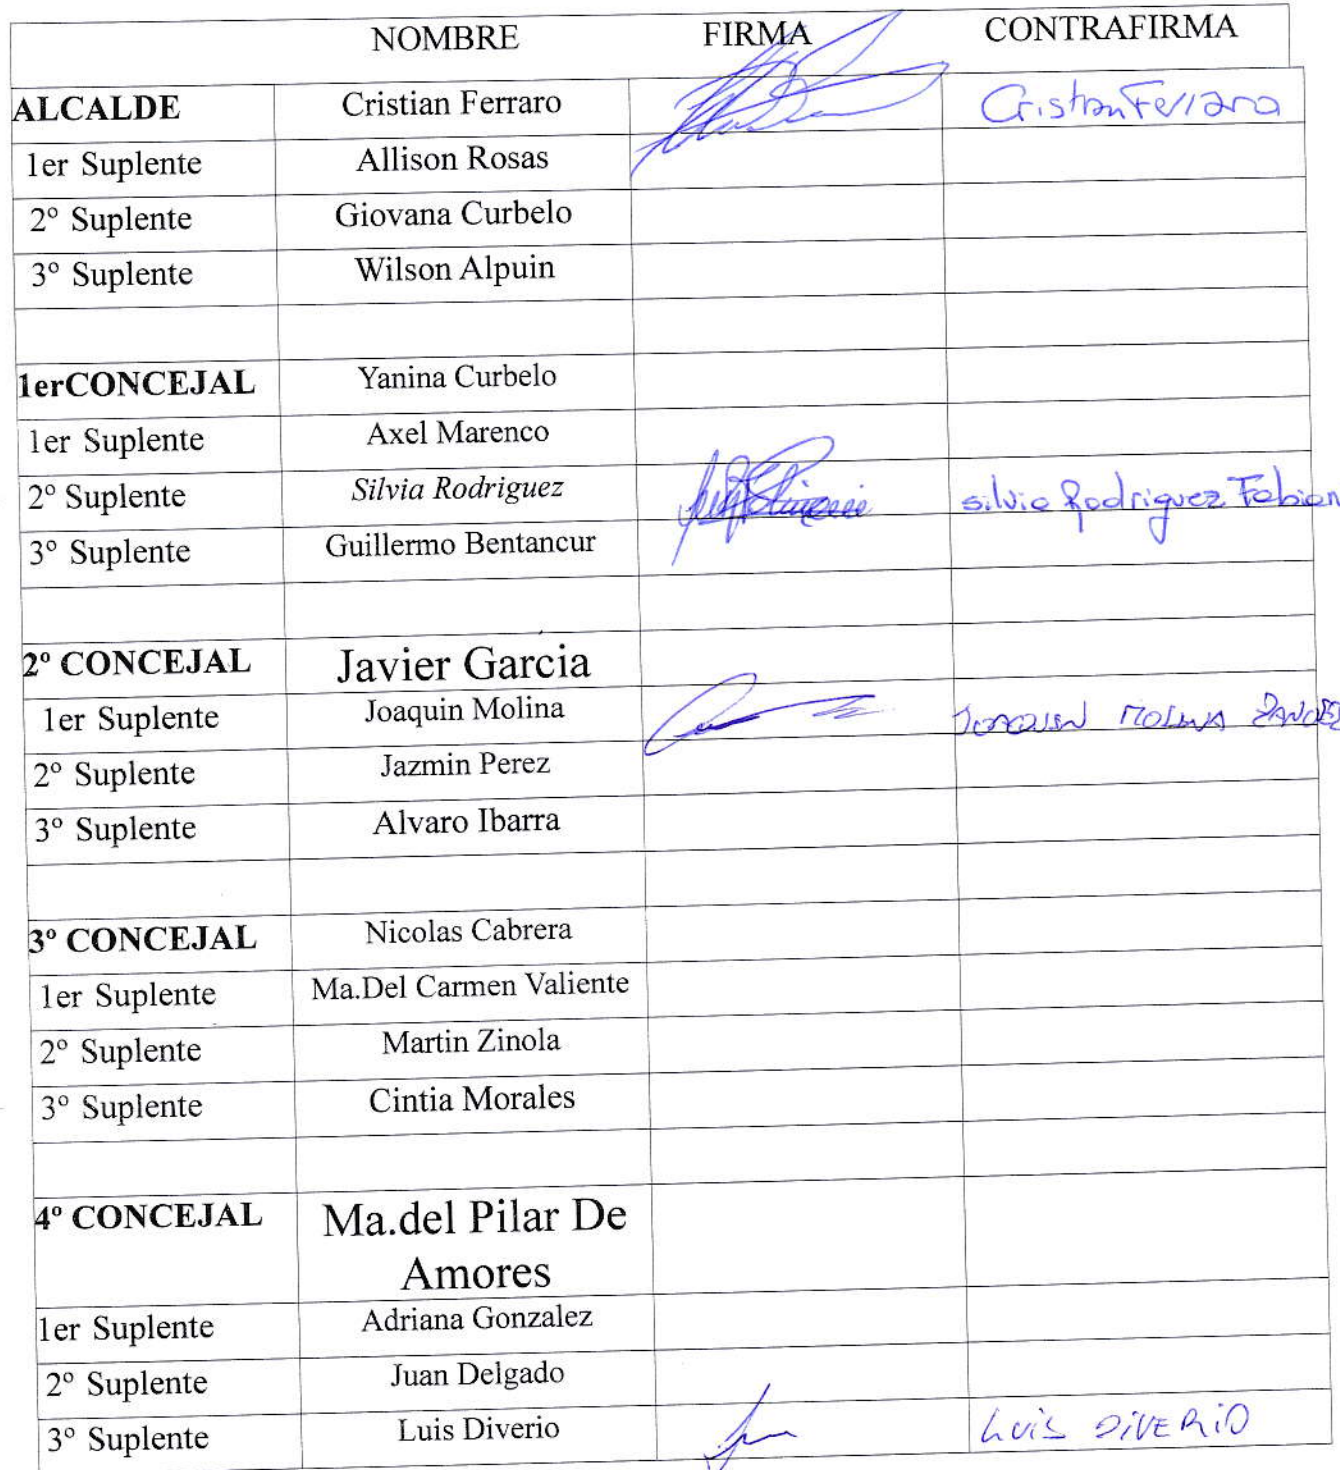 NOMBRE FIRMA CONTRAFIRMA
ALCALDE Cristian Ferraro Cristian Ferraro
1er Suplente Allison Rosas
2º Suplente Giovana Curbelo
3º Suplente Wilson Alpuin
1erCONCEJAL Yanina Curbelo
1er Suplente Axel Marenco
2º Suplente Silvia Rodriguez silvia Rodriguez Fabian
3º Suplente Guillermo Bentancur
2º CONCEJAL Javier Garcia
1er Suplente Joaquin Molina JOAQUIN MOLINA
2º Suplente Jazmin Perez
3º Suplente Alvaro Ibarra
3º CONCEJAL Nicolas Cabrera
1er Suplente Ma.Del Carmen Valiente
2º Suplente Martin Zinola
3º Suplente Cintia Morales
4º CONCEJAL Ma.del Pilar De
Amores
1er Suplente Adriana Gonzalez
2º Suplente Juan Delgado
3º Suplente Luis Diverio LUIS DIVERIO